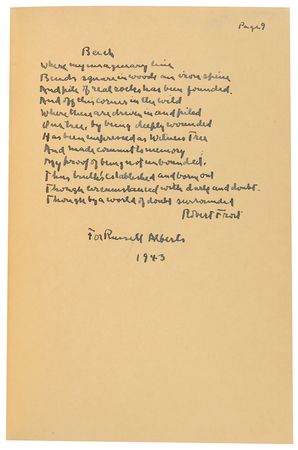 Page 9
Beech
Where my imaginary line
Bends square in woods an iron spine
And pile of real rocks has been founded.
And off this corner in the wild
Where these are driven in and piled
One tree, by being deeply wounded
Has been impressed as Witness Tree
And made commit to memory
My proof of being not unbounded.
Thus truth's established and borne out
Though circumstanced with dark and doubt.
Though by a world of doubt surrounded
Robert Frost
For Russell Alberts
1943